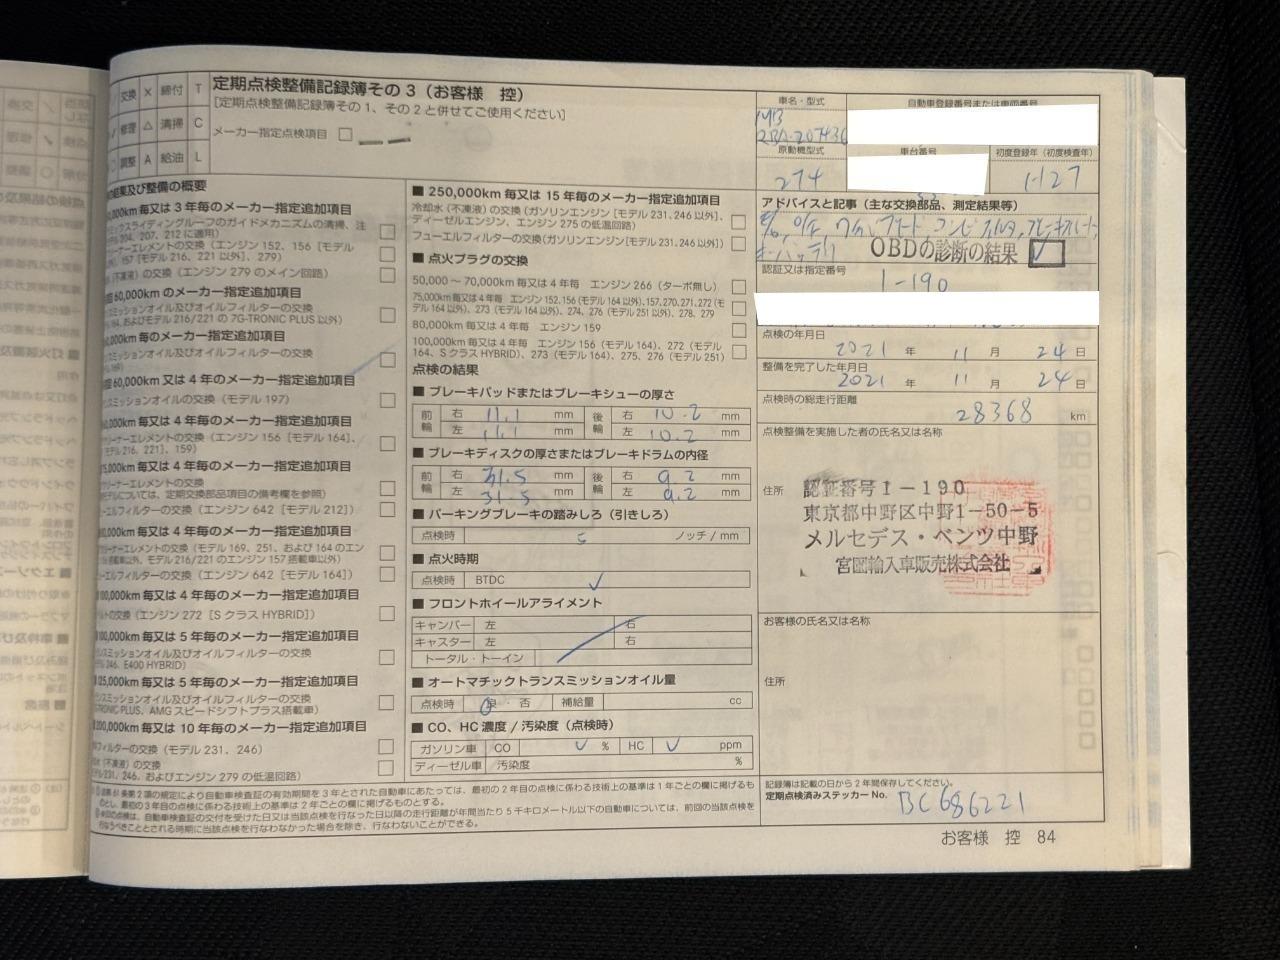 交換 × 締付 T
修理 △ 清掃 C
調整 A 給油 L
定期点検整備記録簿その3(お客様 控)
[定期点検整備記録簿その1、その2と併せてご使用ください]
メーカー指定点検項目
の結果及び整備の概要
000km毎又は3年毎のメーカー指定追加項目
ミックスライディングルーフのガイドメカニズムの清掃、注
204、207、212に適用)
ーエレメントの交換(エンジン 152、156[モデル
、157[モデル 216、221 以外]、279)
(不凍液)の交換(エンジン 279 のメイン回路)
60,000kmのメーカー指定追加項目
ミッションオイル及びオイルフィルターの交換
164、およびモデル216/221の7G-TRONIC PLUS 以外)
毎のメーカー指定追加項目
スミッションオイル及びオイルフィルターの交換
169)
60,000km又は4年毎のメーカー指定追加項目
ンスミッションオイルの交換(モデル 197)
60,000km又は4年毎のメーカー指定追加項目
クリーナーエレメントの交換(エンジン 156[モデル 164]、
216、221]、159)
75,000km又は4年毎のメーカー指定追加項目
クリーナーエレメントの交換
モデルについては、定期交換部品項目の備考欄を参照)
ーエルフィルターの交換(エンジン 642[モデル 212])
80,000km又は4年毎のメーカー指定追加項目
クリーナーエレメントの交換(モデル 169、251、および 164 のエン
搭載車以外、モデル 216/221 のエンジン 157 搭載車以外)
ーエルフィルターの交換(エンジン 642[モデル 164])
100,000km毎又は4年毎のメーカー指定追加項目
ルトの交換(エンジン 272[S クラス HYBRID])
100,000km毎又は5年毎のメーカー指定追加項目
ンスミッションオイル及びオイルフィルターの交換
246、E400 HYBRID)
125,000km毎又は5年毎のメーカー指定追加項目
ンスミッションオイル及びオイルフィルターの交換
G-TRONIC PLUS、AMG スピードシフトプラス搭載車)
200,000km毎又は10年毎のメーカー指定追加項目
フィルターの交換(モデル 231、246)
(不凍液)の交換
231、246、およびエンジン 279 の低温回路)
■ 250,000km毎又は15年毎のメーカー指定追加項目
冷却水(不凍液)の交換(ガソリンエンジン[モデル 231、246 以外]、
ディーゼルエンジン、エンジン 275 の低温回路)
フューエルフィルターの交換(ガソリンエンジン[モデル 231、246 以外])
■ 点火プラグの交換
50,000〜70,000km毎又は4年毎 エンジン 266(ターボ無し)
75,000km毎又は4年毎 エンジン 152、156(モデル 164 以外)、157、270、271、272(モ
デル 164 以外)、273(モデル 164 以外)、274、276(モデル 251 以外)、278、279
80,000km毎又は4年毎 エンジン 159
100,000km毎又は4年毎 エンジン 156(モデル 164)、272(モデル
164、S クラス HYBRID)、273(モデル 164)、275、276(モデル 251)
点検の結果
■ ブレーキパッドまたはブレーキシューの厚さ
前輪 右 11.1 mm 後輪 右 10.2 mm
左 11.1 mm 左 10.2 mm
■ ブレーキディスクの厚さまたはブレーキドラムの内径
前輪 右 31.5 mm 後輪 右 9.2 mm
左 31.5 mm 左 9.2 mm
■ パーキングブレーキの踏みしろ(引きしろ)
点検時 5 ノッチ / mm
■ 点火時期
点検時 BTDC
■ フロントホイールアライメント
キャンバー 左 右
キャスター 左 右
トータル・トーイン
■ オートマチックトランスミッションオイル量
点検時 良・否 補給量 cc
■ CO、HC 濃度 / 汚染度(点検時)
ガソリン車 CO % HC ppm
ディーゼル車 汚染度 %
車名・型式
MB
RBA-207436
自動車登録番号または車両番号
原動機型式
274
車台番号
初度登録年(初度検査年)
H27
アドバイスと記事(主な交換部品、測定結果等)
OBDの診断の結果
認証又は指定番号
1-190
点検の年月日
2021 年 11 月 24 日
整備を完了した年月日
2021 年 11 月 24 日
点検時の総走行距離
28368 km
点検整備を実施した者の氏名又は名称
住所
認証番号1-190
東京都中野区中野1-50-5
メルセデス・ベンツ中野
宮園輸入車販売株式会社
お客様の氏名又は名称
住所
記録簿は記載の日から2年間保存してください。
定期点検済みステッカー No. BC686221
第 61 条第2項の規定により自動車検査証の有効期間を3年とされた自動車にあたっては、最初の2年目の点検に係わる技術上の基準は1年ごとの欄に掲げるもの
のとし、最初の3年目の点検に係わる技術上の基準は2年ごとの欄に掲げるものとする。
の点検は、自動車検査証の交付を受けた日又は当該点検を行なった日以降の走行距離が年間当たり5千キロメートル以下の自動車については、前回の当該点検を
行なうべきこととされる時期に当該点検を行なわなかった場合を除き、行なわないことができる。
お客様 控 84